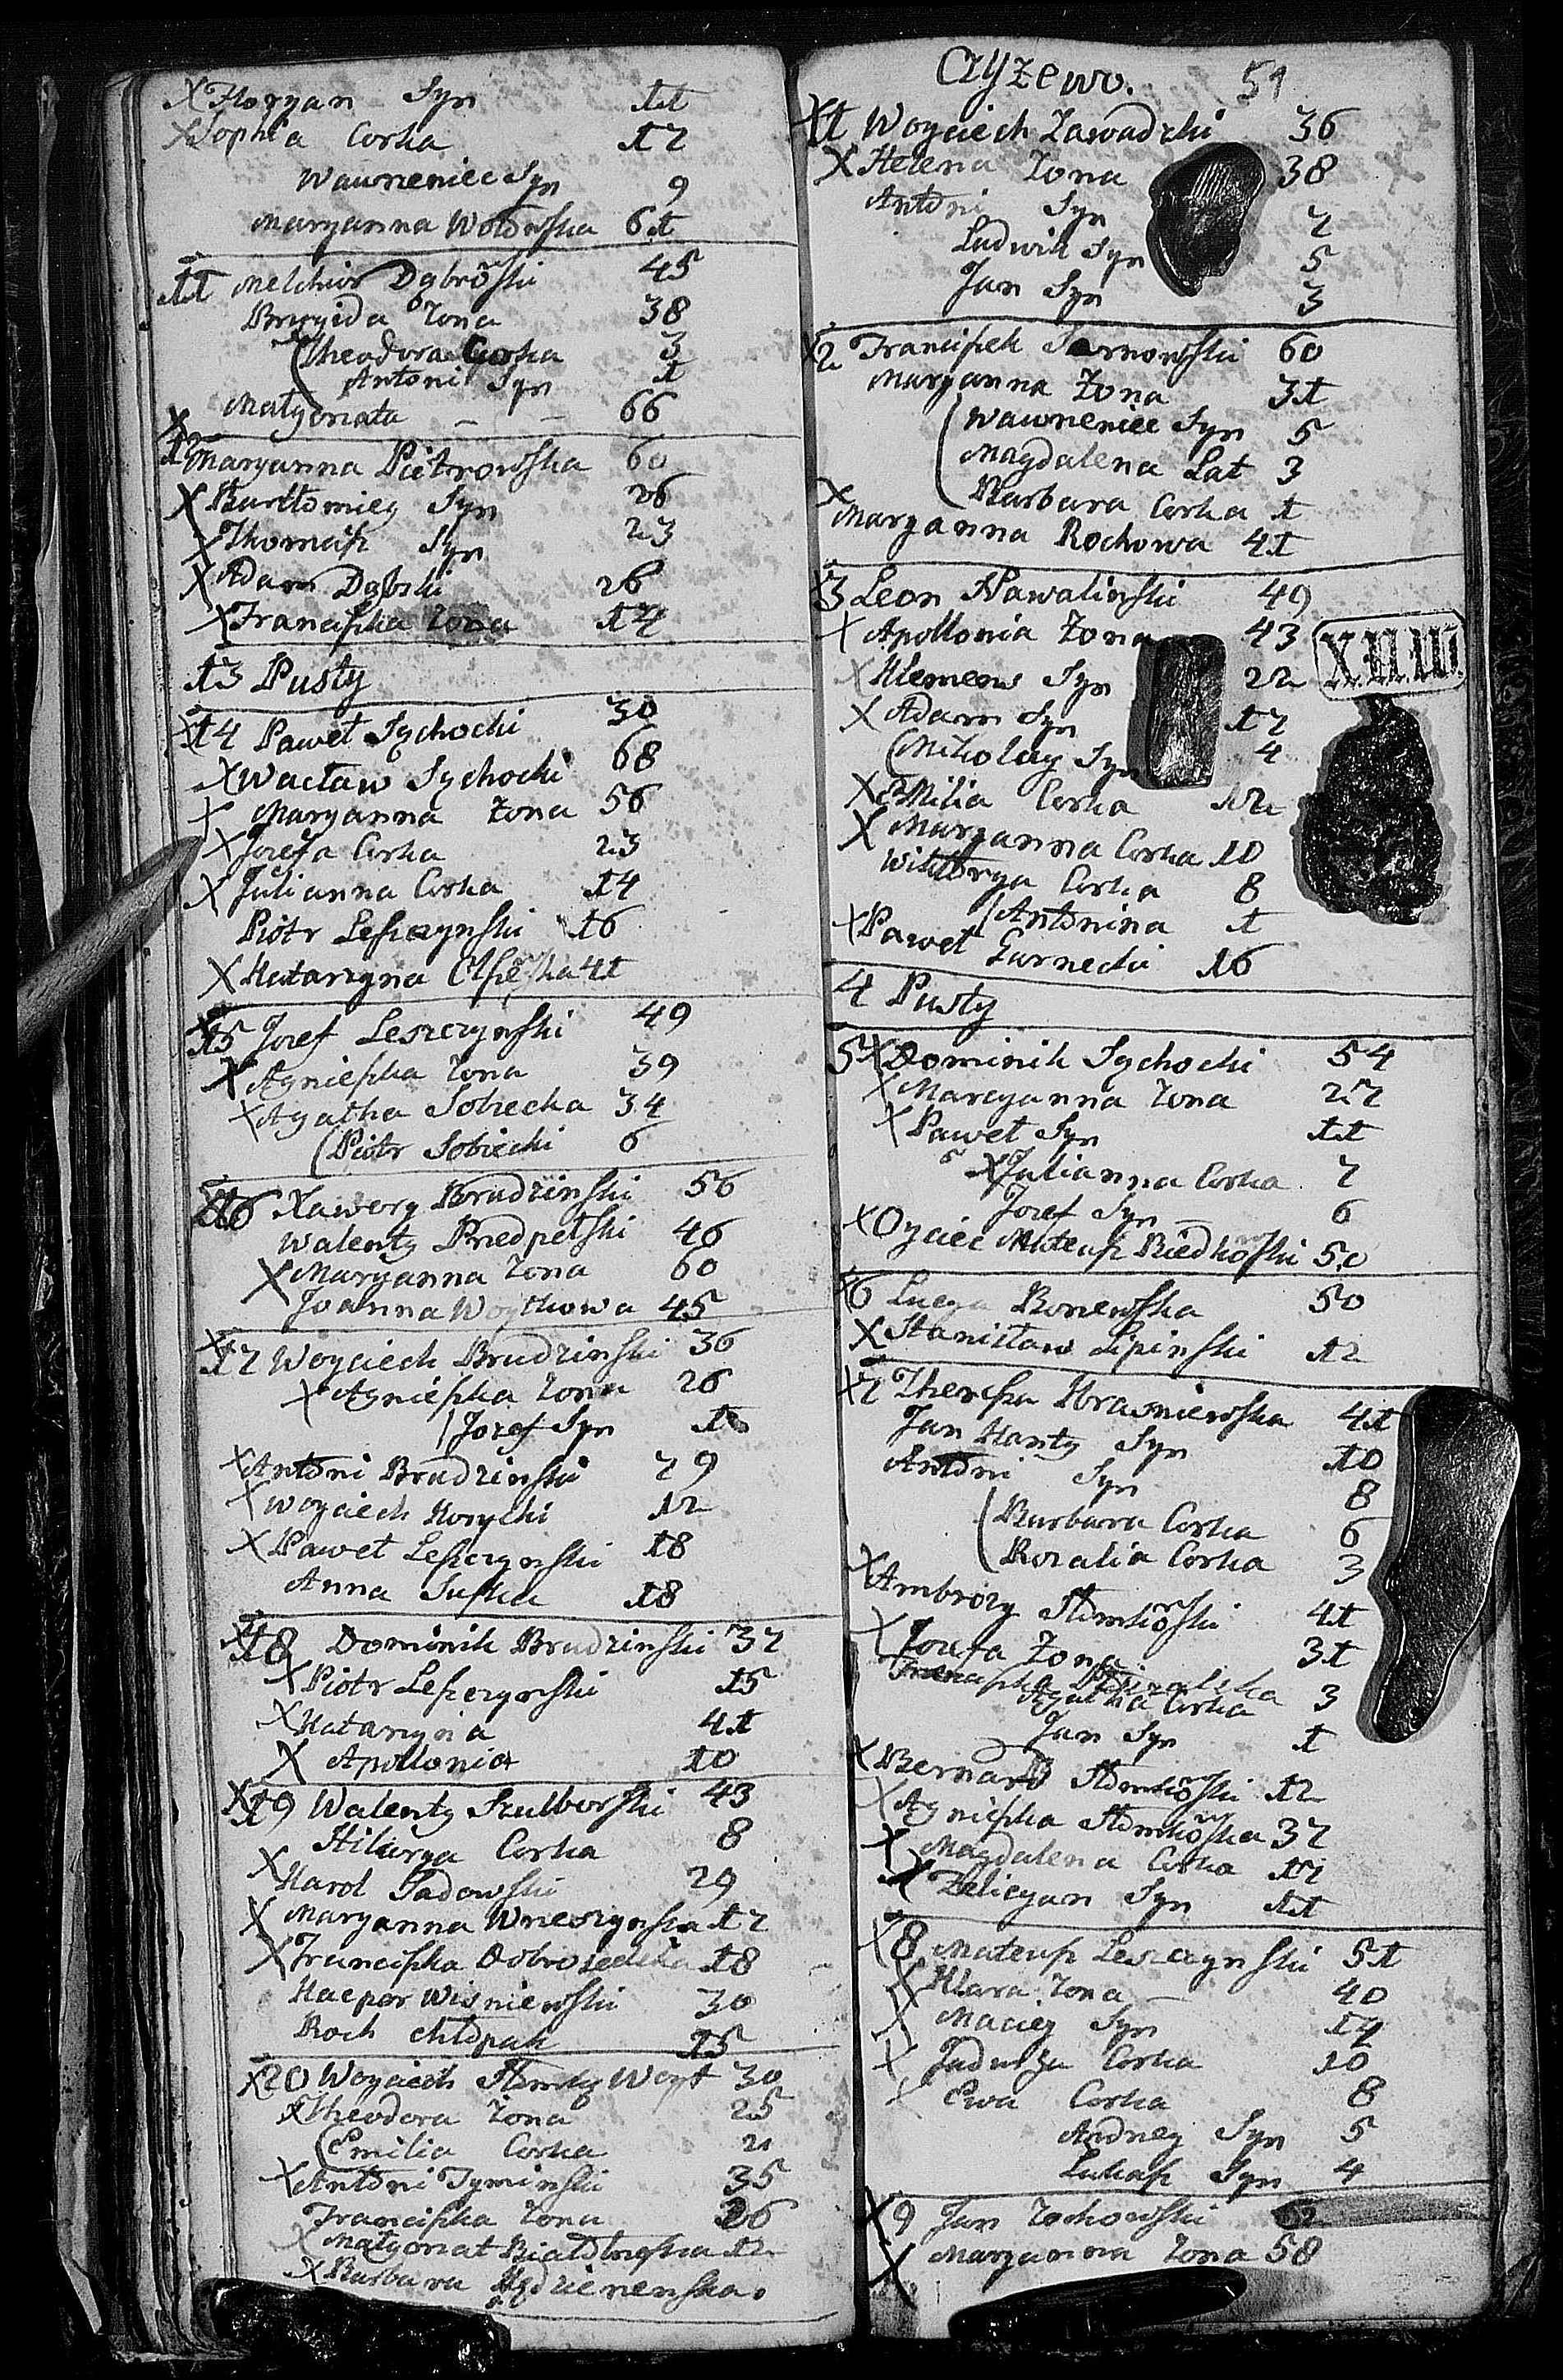 X Floryan Syn 11
X Sophia Corka 17
Wawrzeniec Syn 9
Maryanna Wolowska 61
11 Melchior Dąbrowski 45
Brygida Zona 38
Theodora Corka 3
Antoni Syn 1
Małgorzata - - 66
X
12 Maryanna Pietrowska 60
X Bartłomiey Syn 26
X Thomasz Syn 23
X Adam Dąbski 26
X Franciszka Zona 14
13 Pusty
X 14 Paweł Sychocki 30
X Wacław Sychocki 68
X Maryanna Zona 56
X Jozefa Corka 23
X Julianna Corka 14
Piotr Leszczynski 16
X Katarzyna 41
X 15 Jozef Leszczynski 49
X Agnieszka Zona 39
X Agatha Sobiecka 34
(Piotr Sobiecki 6
X 16 Xawery Brudzinski 56
Walenty Przedpełski 46
X Maryanna Zona 60
Joanna Woytkowa 45
X 17 Woyciech Brudzinski 36
X Agnieszka Zona 26
(Jozef Syn 1
X Antoni Brudzinski 79
X Woyciech 12
X Paweł Leszczynski 18
Anna 18
X 18 Dominik Brudzinski 37
X Piotr Leszczynski 15
X Katarzyna 41
X Apollonia 10
X 19 Walenty Szulborski 43
Hilarya Corka 8
X Karol Sadowski 29
X Maryanna Wrzeszynska 17
X Franciszka 18
Kacper Wisniewski 30
Roch chłopak 15
X 20 Woyciech Woyt 30
X Theodora Zona 25
(Emilia Corka 2
X Antoni Tyminski 35
Franciszka Zona 26
X Małgorzat 12
X Barbara
Czyzewo. 51
X 1 Woyciech Zawadzki 36
X Helena Zona 38
Antoni Syn 7
Ludwik Syn 5
Jan Syn 3
X 2 Franciszek Sarnowski 60
Maryanna Zona 31
(Wawrzeniec Syn 5
Magdalena Lat 3
Barbara Corka 1
X Maryanna Rochowa 41
X 3 Leon Nawalinski 49
X Apollonia Zona 43
X Klemens Syn 22
X Adam Syn 17
(Mikolay Syn 4
X Emilia Corka 12
X Maryanna Corka 10
Wiktorya Corka 8
(Antonina 1
X Paweł Garnecki 16
4 Pusty
5 X Dominik Sychocki 54
X Maryanna Zona 27
X Paweł Syn 11
X Julianna Corka 7
Jozef Syn 6
X Oyciec Mateusz 50
X 6 Lucya Bonewska 50
X Stanisław Lipinski 12
X 7 Theresa Krasniewska 41
Jan Kanty Syn 10
Antoni Syn 8
(Barbara Corka 6
Rozalia Corka 3
X Ambrozy Słomkowski 41
X Jozefa Zona 31
Agatha Corka 3
Jan Syn 1
X Bernard Słomkowski 12
X Agnieszka Słomkowska 37
X Magdalena Corka 17
X Felicyan Syn 11
X 8 Mateusz Leszczynski 51
X Klara Zona - 40
X Maciey Syn 14
X Jadwiga Corka 10
X Ewa Corka 8
Andrzey Syn 5
Lukasz Syn 4
X 9 Jan Zochowski 62
X Maryanna Zona 58
X.II.III.